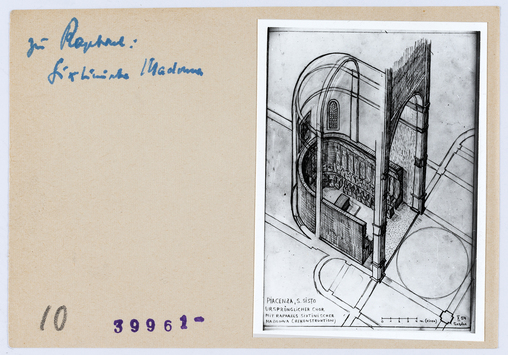 zu Raphael:
Sixtinische Madonna
PIACENZA, S. SISTO
URSPRÜNGLICHER CHOR
MIT RAPHAELS SIXTINISCHER
MADONNA (REKONSTRUKTION)
10
39961-